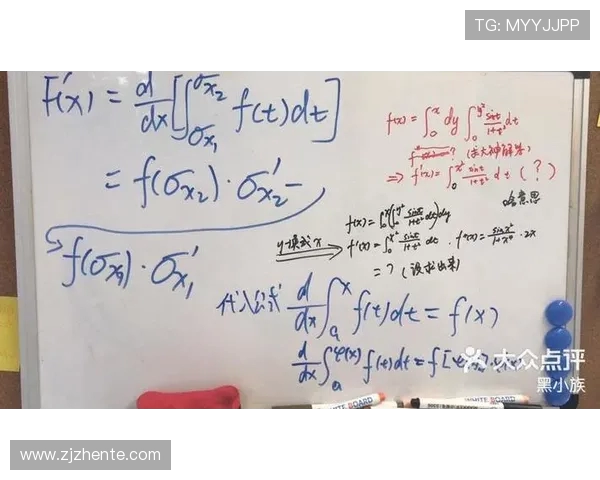 TG: MYYJJPP
F'(x) = d/dx [∫_{σx₁}^{σx₂} f(t)dt]
= f(σx₂)·σx₂' −
f(σx₁)·σx₁'
f(x) = ∫₀ˣ dy ∫₀^{y²} sint/1+t² dt
? (求大神解答)
⇒ f'(x) = ∫₀^{x²} sint/1+t² dt (?)
啥意思
f(x) = ∫₀ˣ(∫₀^{y²} sint/1+t² dt)dy
y换成x f'(x) = ∫₀^{x²} sint/1+t² dt . f''(x) = sinx²/1+x⁴ · 2x
= ? (没求出来)
代入公式 d/dx ∫ₐˣ f(t)dt = f(x)
d/dx ∫ₐ^{φ(x)} f(t)dt = f[
大众点评
黑小族
WHITE BOARD
WHITE BOARD
www.zjzhente.com